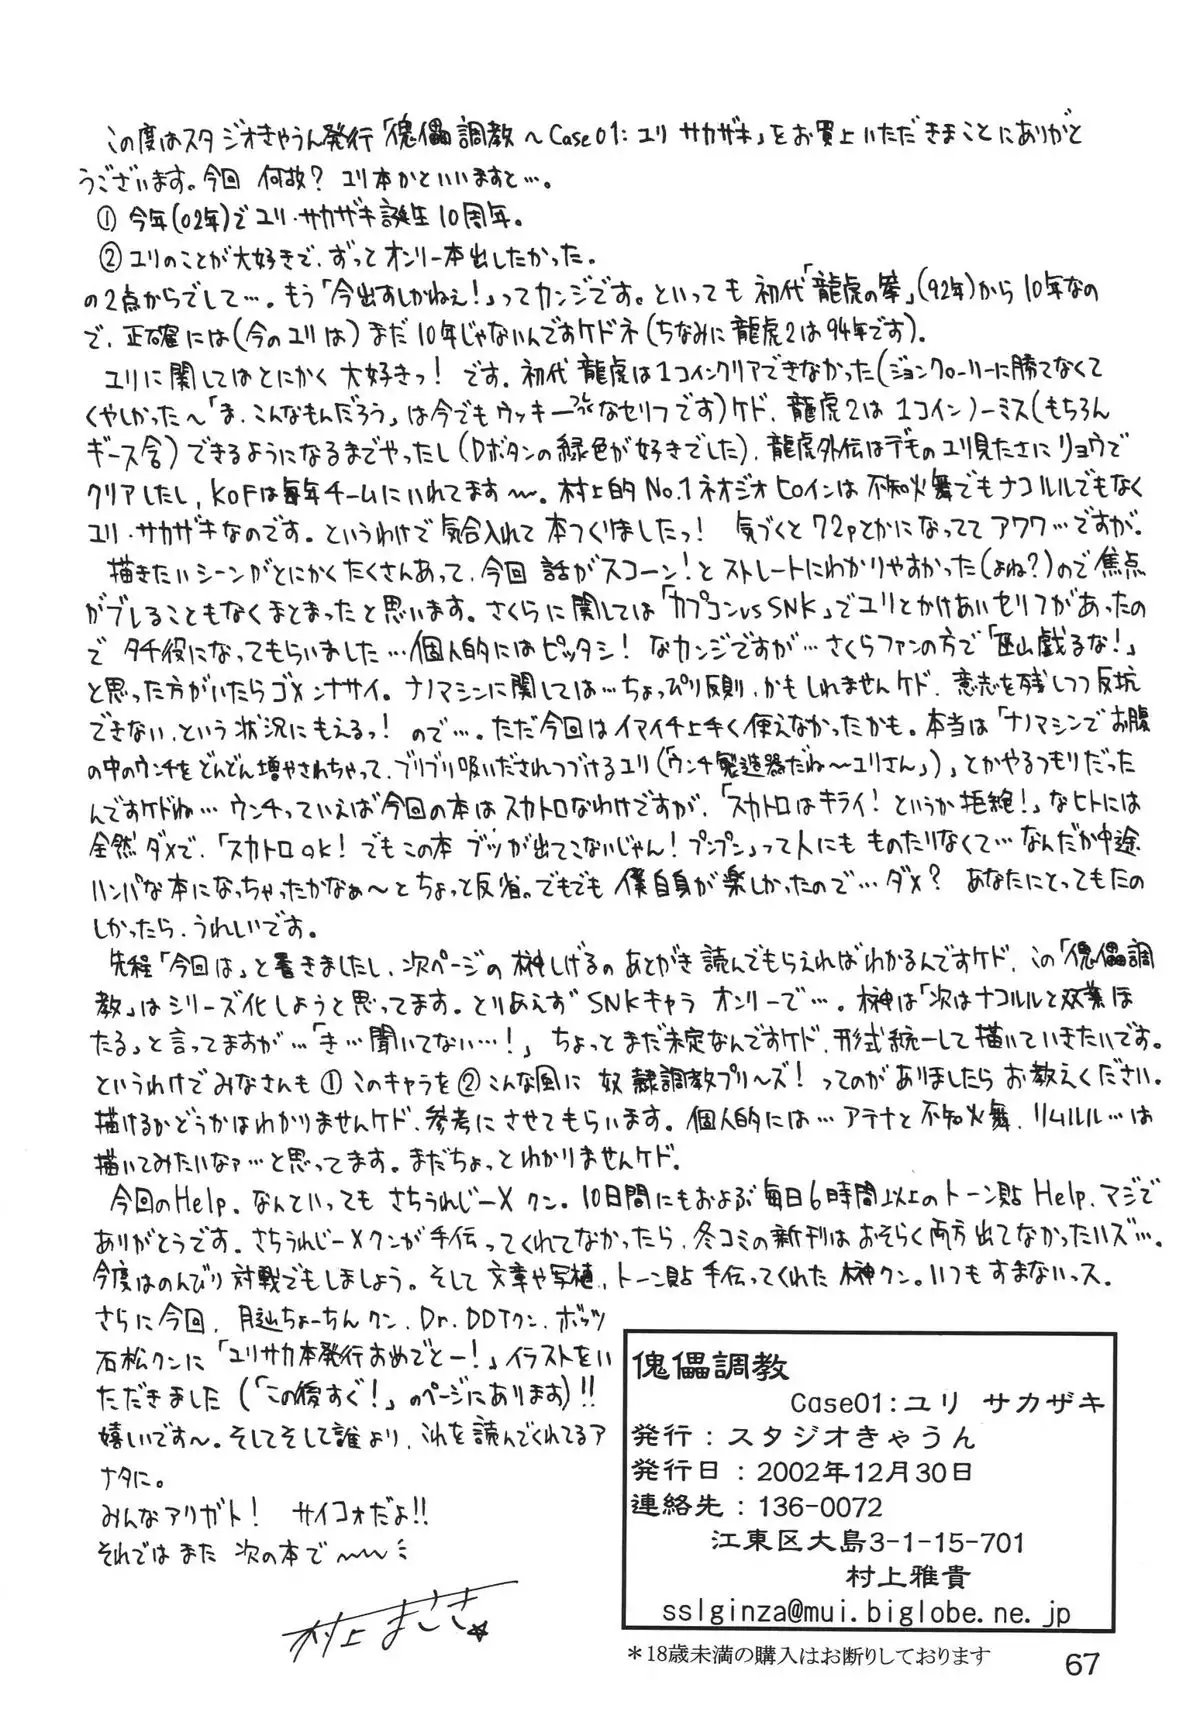 この度はスタジオきゃうん発行「傀儡調教～Case01:ユリ サカザキ」をお買上いただきまことにありがと
うございます。今回 何故？ ユリ本かといいますと…。
① 今年(02年)でユリ・サカザキ誕生10周年。
② ユリのことが大好きで、ずっとオンリー本出したかった。
の2点からでして…。もう「今出すしかねぇ！」ってカンジです。といっても 初代「龍虎の拳」(92年)から10年なの
で、正確には(今のユリは)まだ10年じゃないんですケドネ(ちなみに龍虎2は94年です)。
ユリに関してはとにかく 大好きっ！ です。初代龍虎は1コインクリアできなかった(ジョンクローリーに勝てなくて
くやしかった～「ま、こんなもんだろう」は今でもウッキーなセリフです)ケド、龍虎2は1コインノーミス(もちろん
ギース含)できるようになるまでやったし(Dボタンの緑色が好きでした)、龍虎外伝はデモのユリ見たさにリョウで
クリアしたし、KOFは毎年チームにいれてます～。村上的No.1ネオジオヒロインは 不知火舞でもナコルルでもなく
ユリ・サカザキなのです。というわけで気合入れて本つくりましたっ！ 気づくと72pとかになっててアワワ…ですが。
描きたいシーンがとにかくたくさんあって、今回 話がスコーン！とストレートにわかりやすかった(よね？)ので焦点
がブレることもなくまとまったと思います。さくらに関しては「カプコンvsSNK」でユリとかけあいセリフがあったの
で タチ役になってもらいました…個人的にはピッタシ！ なカンジですが…さくらファンの方で「巫山戯るな！」
と思った方がいたらゴメンナサイ。ナノマシンに関しては…ちょっぴり反則、かもしれませんケド、意志を残しつつ反抗
できない、という状況にもえるっ！ ので…。ただ今回はイマイチ上手く使えなかったかも。本当は「ナノマシンでお腹
の中のウンチをどんどん増やされちゃって、ブリブリ吸いだされつづけるユリ(「ウンチ製造器だね～ユリさん」)」とかやるつもりだった
んですケドね…ウンチっていえば今回の本はスカトロなわけですが、「スカトロはキライ！というか拒絶！」なヒトには
全然ダメで、「スカトロok！でもこの本 ブツが出てこないじゃん！プンプン」って人にも ものたりなくて…なんだか中途
ハンパな本になっちゃったかなぁ～とちょっと反省。でもでも 僕自身が楽しかったので…ダメ？ あなたにとってもたの
しかったら、うれしいです。
先程「今回は」と書きましたし、次ページの榊しげるのあとがき読んでもらえればわかるんですケド、この「傀儡調
教」はシリーズ化しようと思ってます。とりあえずSNKキャラ オンリーで…。榊は「次はナコルルと双葉ほ
たる」と言ってますが…「き…聞いてない…！」 ちょっとまだ未定なんですケド、形式統一して描いていきたいです。
というわけでみなさんも ①このキャラを ②こんな風に 奴隷調教プリーズ！ ってのがありましたらお教えください。
描けるかどうかはわかりませんケド、参考にさせてもらいます。個人的には…アテナと不知火舞、リムルル…は
描いてみたいなァ…と思ってます。まだちょっとわかりませんケド。
今回のHelp、なんといっても さちうれじーXクン。10日間にもおよぶ毎日6時間以上のトーン貼Help、マジで
ありがとうです。さちうれじーXクンが手伝ってくれてなかったら、冬コミの新刊はおそらく両方出てなかったハズ…。
今度はのんびり対戦でもしましょう。そして文章や写植、トーン貼手伝ってくれた榊クン。いつもすまないっス。
さらに今回、月辿ちょーちんクン、Dr.DDTクン、ボッツ
石松クンに「ユリサカ本発行おめでとー！」イラストをい
ただきました(「この後すぐ！」のページにあります)!!
嬉いです～。そしてそして誰より、これを読んでくれてるア
ナタに。
みんなアリガト！ サイコォだよ!!
それではまた 次の本で～～
村上まさき☆
傀儡調教
Case01:ユリ サカザキ
発行：スタジオきゃうん
発行日：2002年12月30日
連絡先：136-0072
江東区大島3-1-15-701
村上雅貴
sslginza@mui.biglobe.ne.jp
＊18歳未満の購入はお断りしております
67